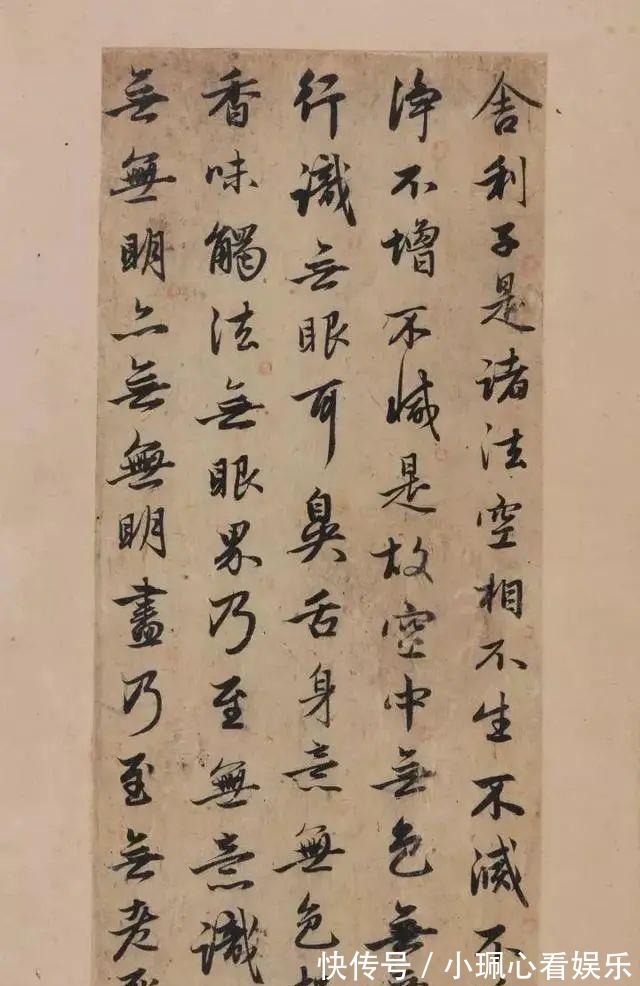 舍利子是诸法空相不生不滅不
淨不增不減是故空中無色無
行識無眼耳鼻舌身意無色
香味觸法無眼界乃至無意識
無無明亦無無明盡乃至無老死
快传号/小珮心看娱乐